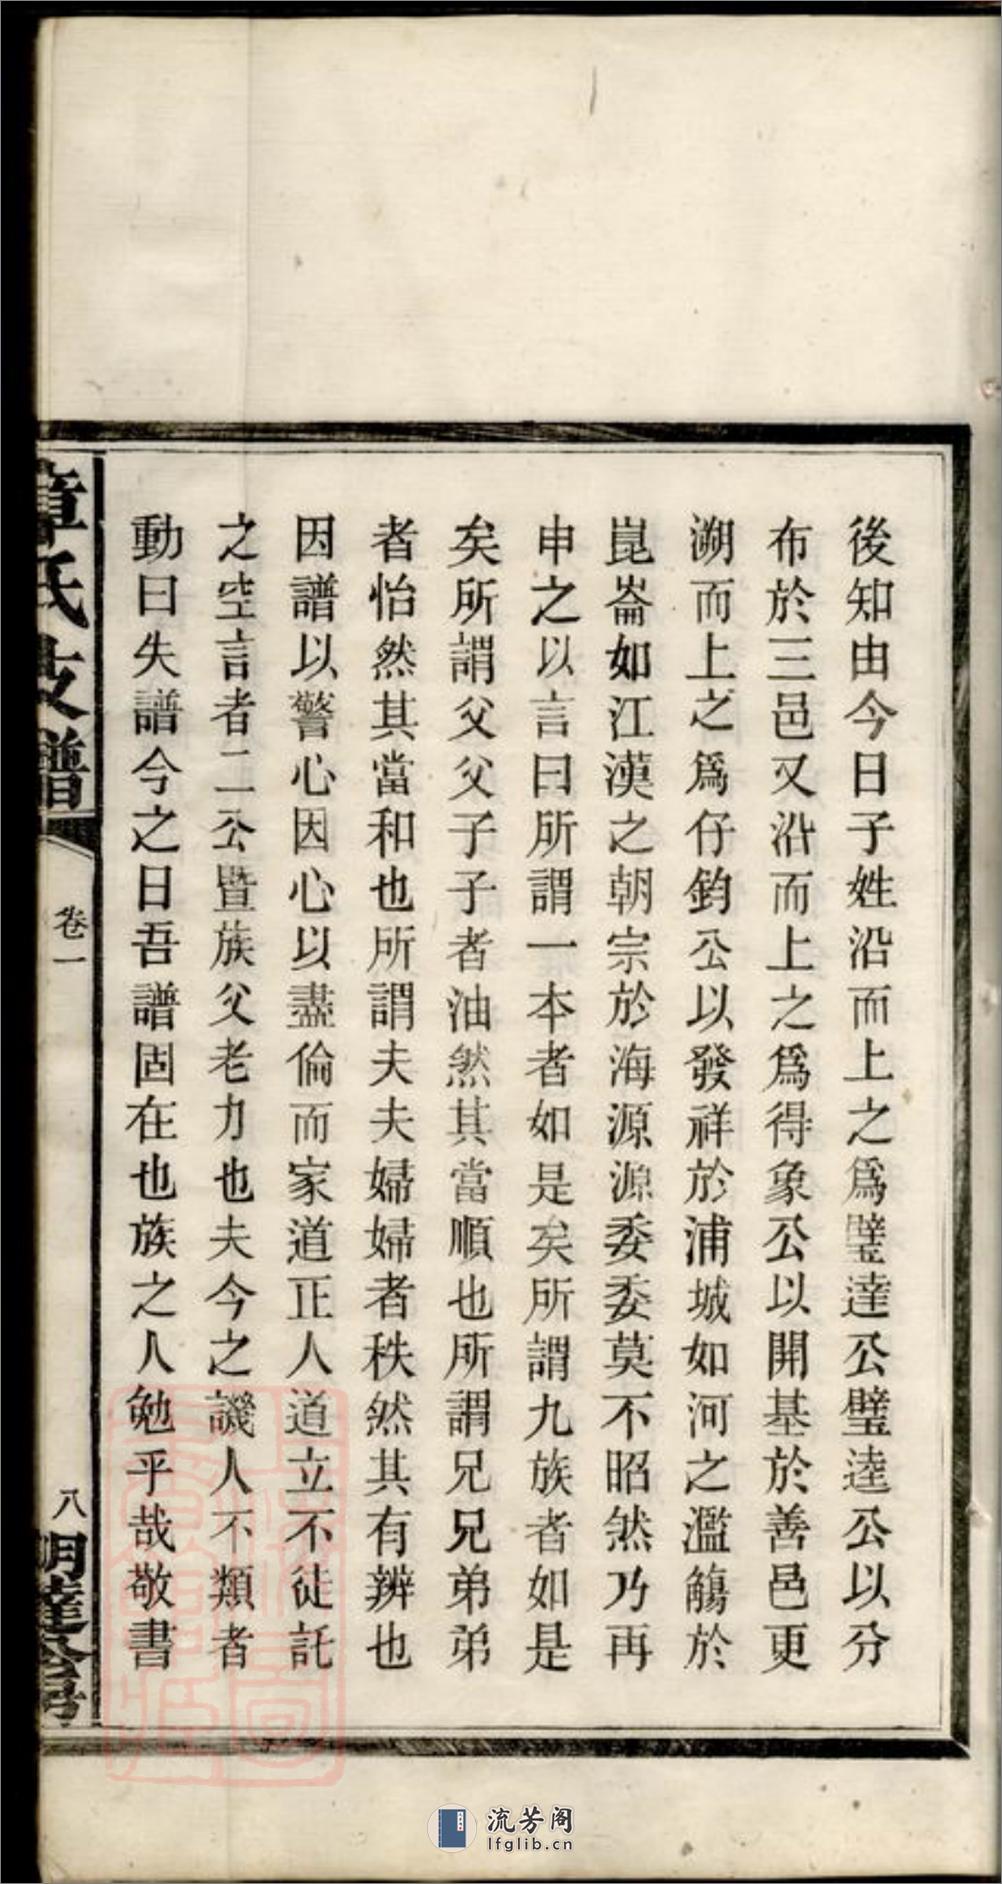 後知由今日子姓沿而上之爲璧達公璧逵公以分
布於三邑又沿而上之爲得象公以開基於善邑更
溯而上之爲仔鈞公以發祥於浦城如河之濫觴於
崑崙如江漢之朝宗於海源源委委莫不昭然乃再
申之以言曰所謂一本者如是矣所謂九族者如是
矣所謂父父子子者油然其當順也所謂兄兄弟弟
者怡然其當和也所謂夫夫婦婦者秩然其有辨也
因譜以警心因心以盡倫而家道正人道立不徒託
之空言者二公暨族父老力也夫今之譏人不類者
動曰失譜今之日吾譜固在也族之人勉乎哉敬書
章氏支譜
卷一
八
明達公房
流芳阁
lfglib.cn